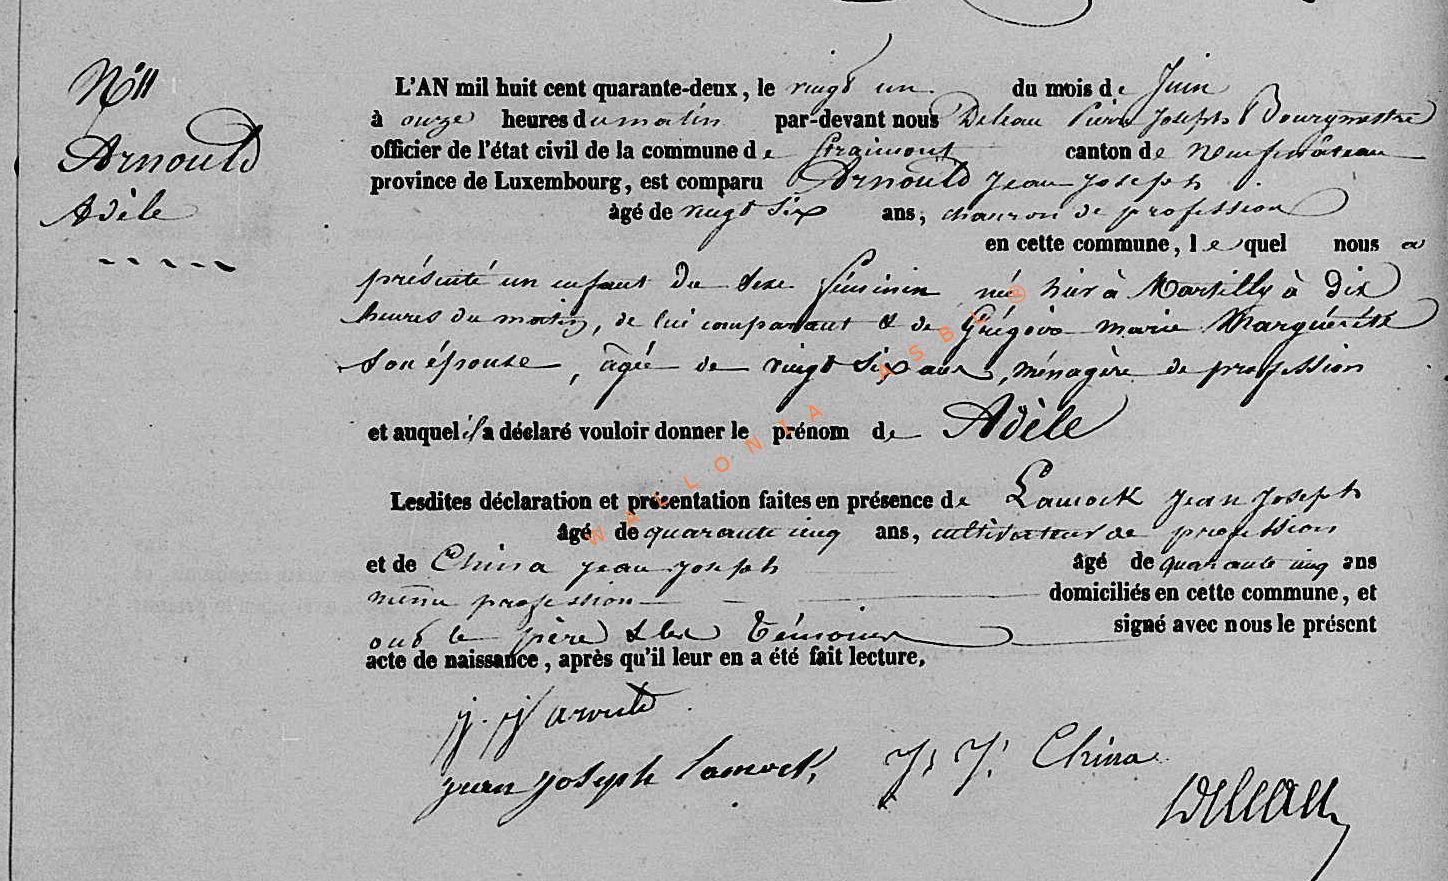 N° 11
Arnould
Adèle
L'AN mil huit cent quarante-deux, le vingt un du mois de Juin
à onze heures du matin par-devant nous Deleau Pierre Joseph Bourgmestre
officier de l'état civil de la commune de Straimont canton de Neufchâteau
province de Luxembourg, est comparu Arnould Jean Joseph
âgé de vingt six ans, charron de profession
en cette commune, lequel nous a
présenté un enfant du sexe féminin né hier à Martilly à dix
heures du matin, de lui comparant & de Grégoire Marie Marguerite
son épouse, âgée de vingt six ans, ménagère de profession
et auquel il a déclaré vouloir donner le prénom de Adèle
Lesdites déclaration et présentation faites en présence de Lamock Jean Joseph
âgé de quarante cinq ans, cultivateur de profession
et de China Jean Joseph âgé de quarante cinq ans
même profession domiciliés en cette commune, et
ont le père & les témoins signé avec nous le présent
acte de naissance, après qu'il leur en a été fait lecture.
j. j. arnould
jean joseph lamock, J. J. China
Deleau
WALLONIA ASBL ®